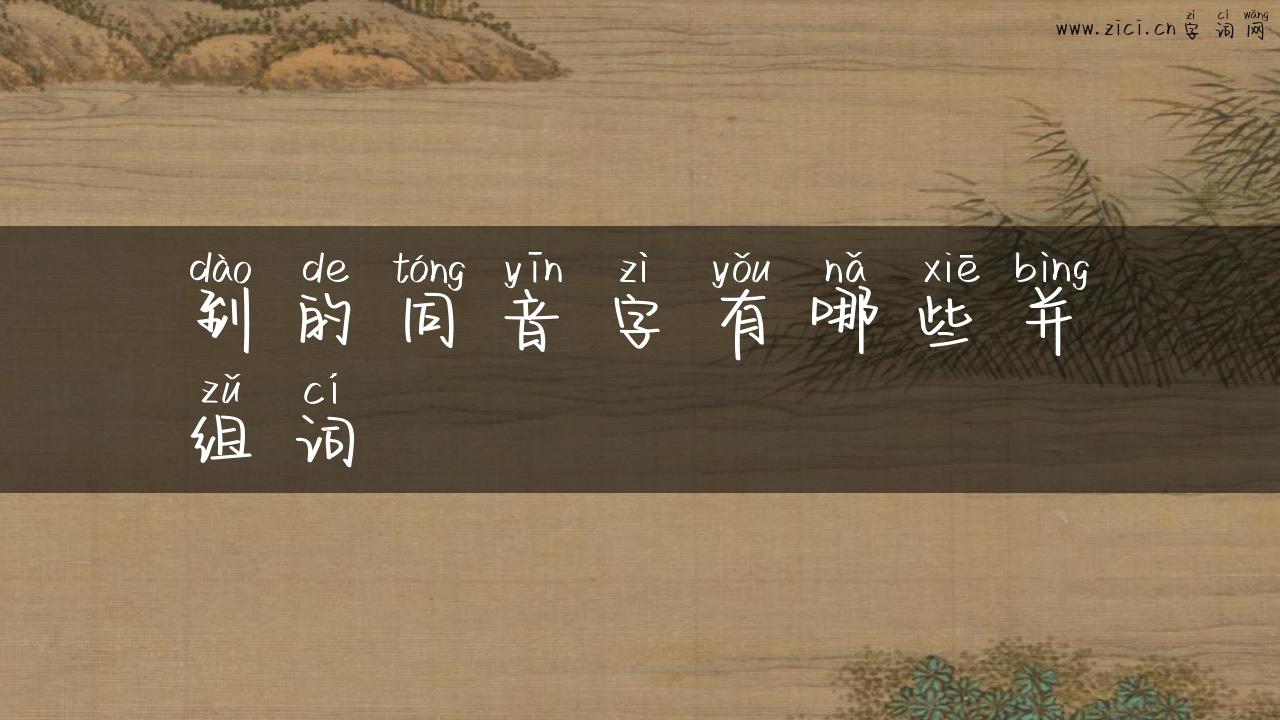 zì cí wǎng
www.zici.cn 字词网
dào de tóng yīn zì yǒu nǎ xiē bìng
到的同音字有哪些并
zǔ cí
组词